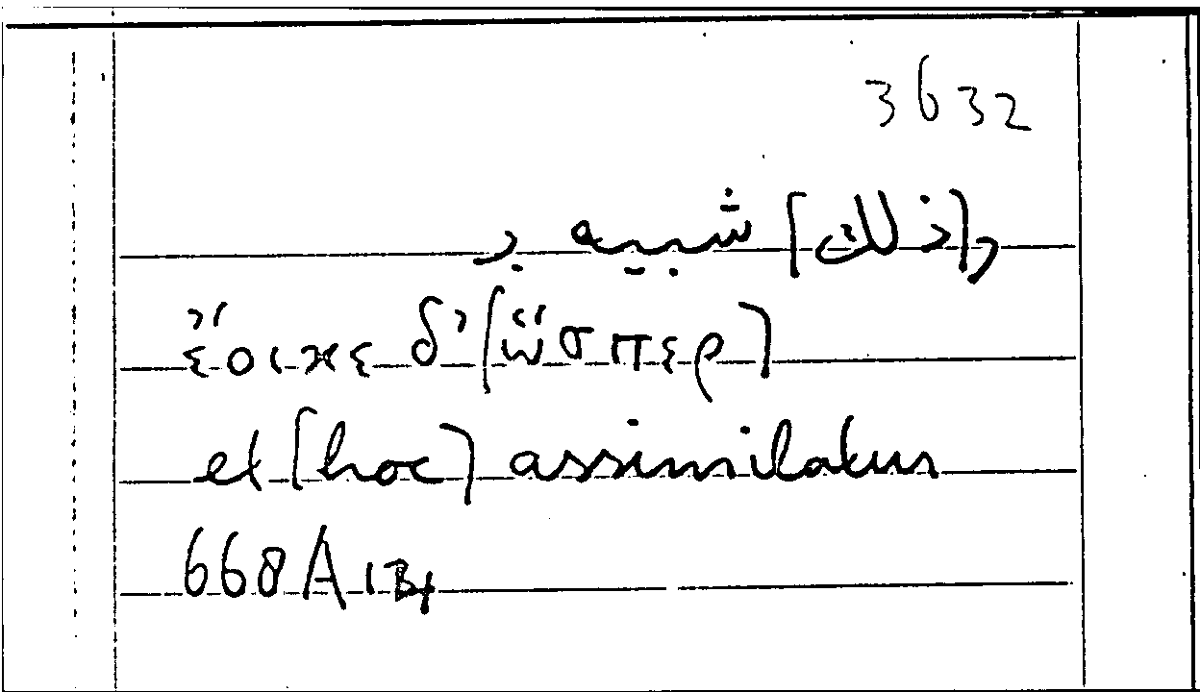 3632
و[ذلك] شبيه بـ
ἔοικε δ' [ὥσπερ]
et [hoc] assimilatur
668A